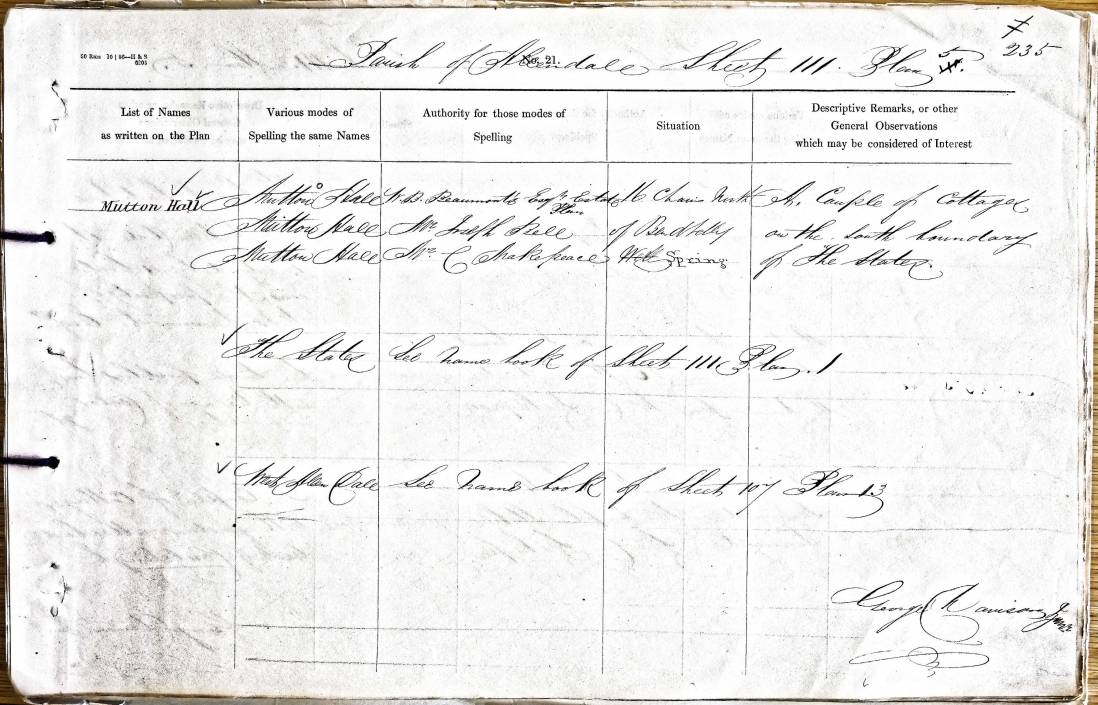 7
235
50 Rms 10 | 60—H & S
6205
No. 21.
Parish of Allendale Sheet 111. Plan 5.
List of Names
as written on the Plan
Various modes of
Spelling the same Names
Authority for those modes of
Spelling
Situation
Descriptive Remarks, or other
General Observations
which may be considered of Interest
Mutton Hall Mutton Hall W. B. Beaumont's Esqr. Estate Plan 16 Chains North A Couple of Cottages
Mutton Hall Mr. Joseph of on the south boundary
Mutton Hall Mr. C Shakepeace Spring of The Slates.
The Slates See Name book of Sheet 111 Plan. 1
West Allen Dale See Name book of Sheet 107 Plan 13
George